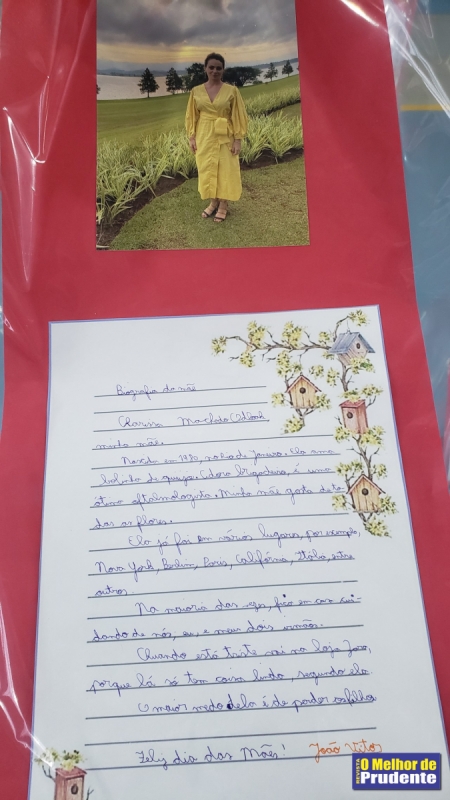 Biografia da mãe
Clarissa Machado
minha mãe.
Nasceu em 1980, no Rio de Janeiro. Ela ama
bolinho de queijo. Adora brigadeiro, é uma
ótima oftalmologista. Minha mãe gosta de to
das as flores.
Ela já foi em vários lugares, por exemplo,
Nova York, Berlim, Paris, Califórnia, Itália, entre
outros.
Na maioria das vezes, fica em casa cui-
dando de nós, eu, e meus dois irmãos.
Quando está triste vai na loja
porque lá só tem coisa linda, segundo ela.
O maior medo dela é de perder os filhos
Feliz dia das Mães! João Vitor
REVISTA O Melhor de
Prudente